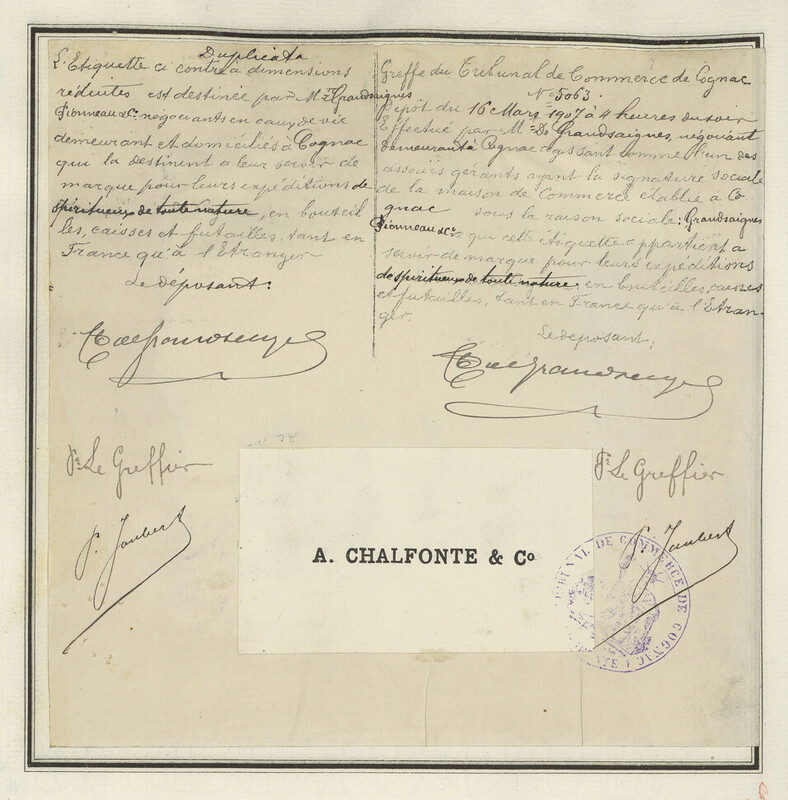 Duplicata
L'Etiquette ci contre a dimensions
réduites est destinée par Mrs Grandsaignes
Pionneau & Co. négociants en eaux de vie
demeurant et domiciliés à Cognac
qui la destinent a leur servir de
marque pour leurs expéditions de
spiritueux de toute nature, en bouteil
les, caisses et futailles, tant en
France qu'à l'Etranger
Le déposant:
Greffe du Tribunal de Commerce de Cognac
No 5063.
Dépôt du 16 Mars 1907 à 4 heures du soir
Effectué par Mr D. Grandsaignes, négociant
demeurant à Cognac agissant comme l'un des
associés gérants ayant la signature sociale
de la maison de Commerce établie à Co
gnac sous la raison sociale: Grandsaignes
Pionneau & Co. qui cette étiquette appartient a
servir de marque pour leurs expéditions
de spiritueux de toute nature, en bouteilles, caisses
et futailles, tant en France qu'à l'Etran-
ger.
Le déposant;
Pr Le Greffier
P. Joubert
Pr Le Greffier
P. Joubert
A. CHALFONTE & Co
TRIBUNAL DE COMMERCE DE COGNAC